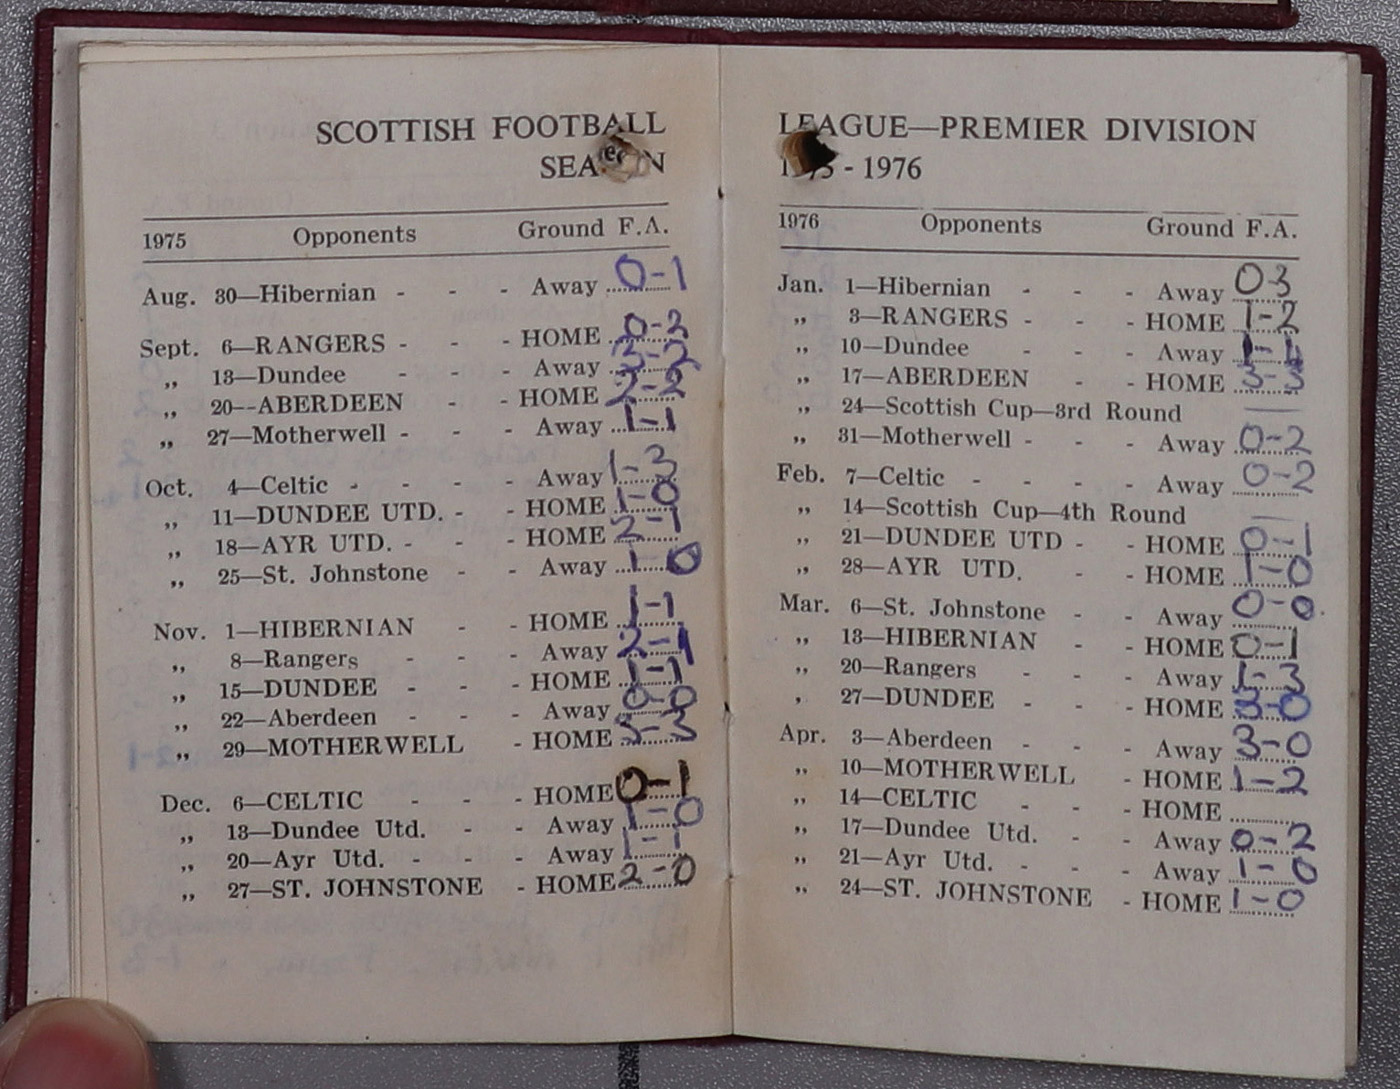 SCOTTISH FOOTBALL
SEA N
1975 Opponents Ground F.A.
Aug. 30—Hibernian - - - Away 0-1
Sept. 6—RANGERS - - - HOME 0-2
„ 13—Dundee - - - Away 3-2
„ 20--ABERDEEN - - HOME 2-2
„ 27—Motherwell - - - Away 1-1
Oct. 4—Celtic - - - - Away 1-3
„ 11—DUNDEE UTD. - - HOME 1-0
„ 18—AYR UTD. - - - HOME 2-1
„ 25—St. Johnstone - - Away 1-0
Nov. 1—HIBERNIAN - - HOME 1-1
„ 8—Rangers - - - Away 2-1
„ 15—DUNDEE - - - HOME 1-1
„ 22—Aberdeen - - - Away 0-0
„ 29—MOTHERWELL - HOME 3-3
Dec. 6—CELTIC - - - HOME 0-1
„ 13—Dundee Utd. - - Away 1-0
„ 20—Ayr Utd. - - - Away 1-1
„ 27—ST. JOHNSTONE - HOME 2-0
LEAGUE—PREMIER DIVISION
- 1976
1976 Opponents Ground F.A.
Jan. 1—Hibernian - - - Away 0 3
„ 3—RANGERS - - - HOME 1-2
„ 10—Dundee - - - Away 1-1
„ 17—ABERDEEN - - HOME 3-3
„ 24—Scottish Cup—3rd Round —
„ 31—Motherwell - - - Away 0-2
Feb. 7—Celtic - - - - Away 0-2
„ 14—Scottish Cup—4th Round —
„ 21—DUNDEE UTD - - HOME 0-1
„ 28—AYR UTD. - - HOME 1-0
Mar. 6—St. Johnstone - - Away 0-0
„ 13—HIBERNIAN - - HOME 0-1
„ 20—Rangers - - - Away 1-3
, 27—DUNDEE - - - HOME 3-0
Apr. 3—Aberdeen - - - Away 3-0
„ 10—MOTHERWELL - HOME 1-2
„ 14—CELTIC - - - HOME
„ 17—Dundee Utd. - - Away 0-2
„ 21—Ayr Utd. - - - Away 1-0
„ 24—ST. JOHNSTONE - HOME 1-0